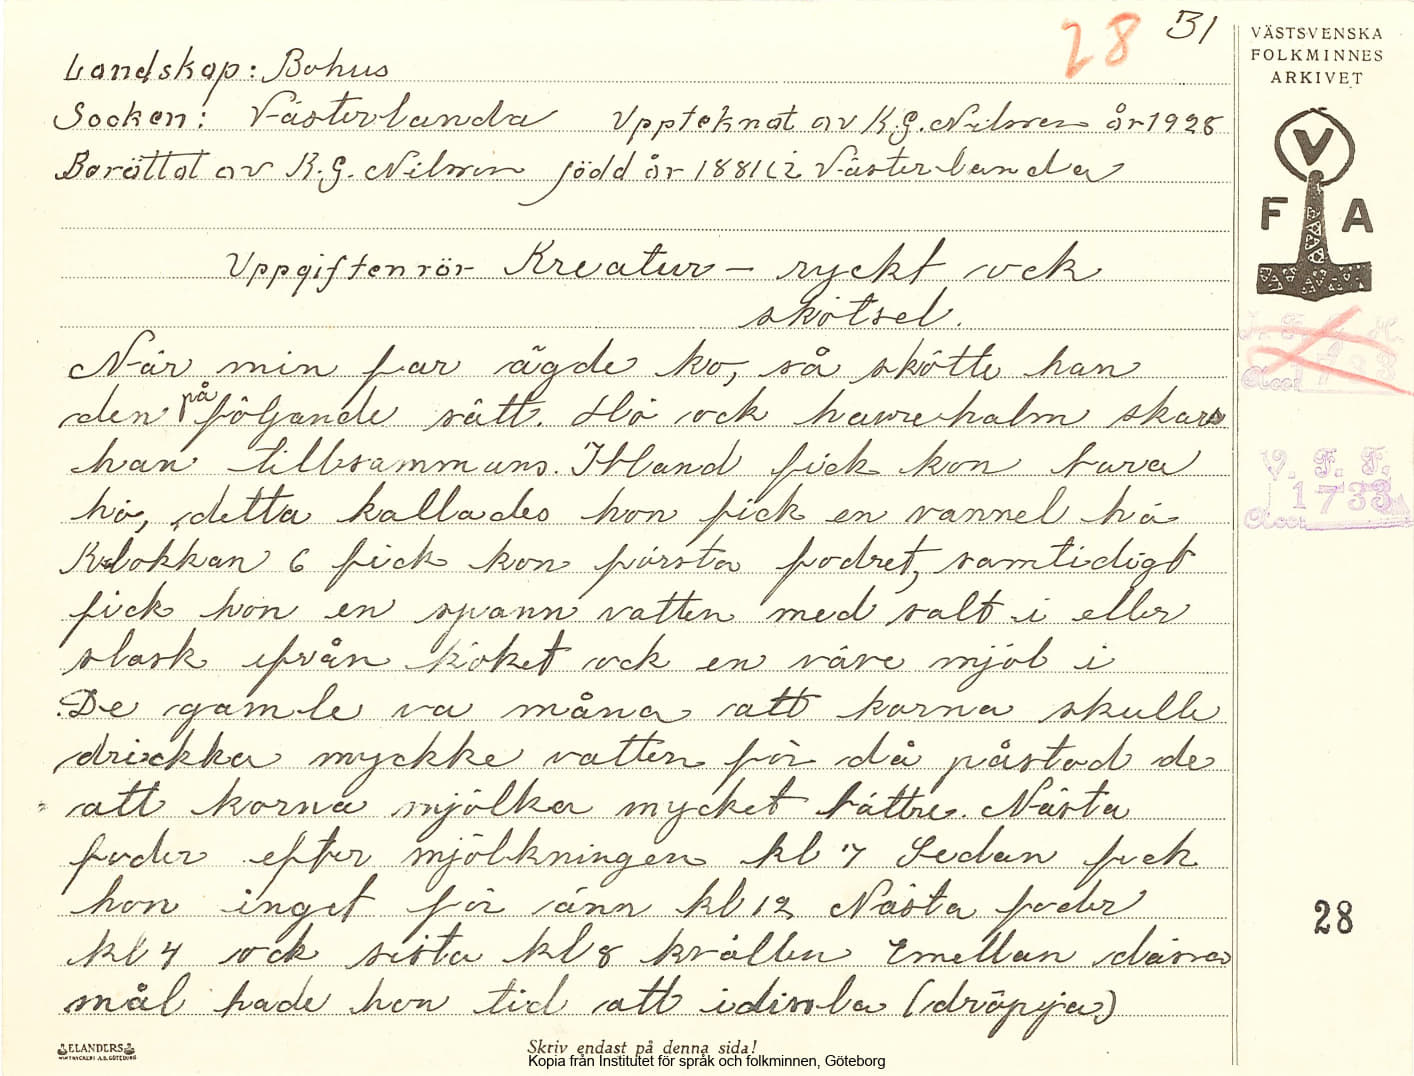 28 B1
VÄSTSVENSKA
FOLKMINNES
ARKIVET
V
F A
Landskap: Bohus
Socken: Västerlanda Uppteknat av K.G. Nilsson år 1928
Berättat av K.G. Nilsson född år 1881 i Västerlanda
Uppgiften rör Kreatur – ryckt ock
skötsel.
När min far ägde ko, så skötte han
den på följande sätt. Hö ock havrehalm skars
han tillsammans. Ibland fick kon bara
hö, detta kallades hon fick en vannel hö
Klokkan 6 fick kon första fodret, samtidigt
fick hon en spann vatten med salt i eller
slask ifrån köket ock en näve mjöl i
De gamle va måna att korna skulle
drickka myckke vatten för då påstod de
att korna mjölka mycket bättre. Nästa
foder efter mjölkningen kl 7 Sedan feck
hon inget för änn kl 12 Nästa foder
kl 4 ock sista kl 8 kvällen Emellan dässa
mål hade hon tid att idissla (dröpja)
V. F. F.
Acc. 1733
28
ELANDERS
Skriv endast på denna sida!
Kopia från Institutet för språk och folkminnen, Göteborg